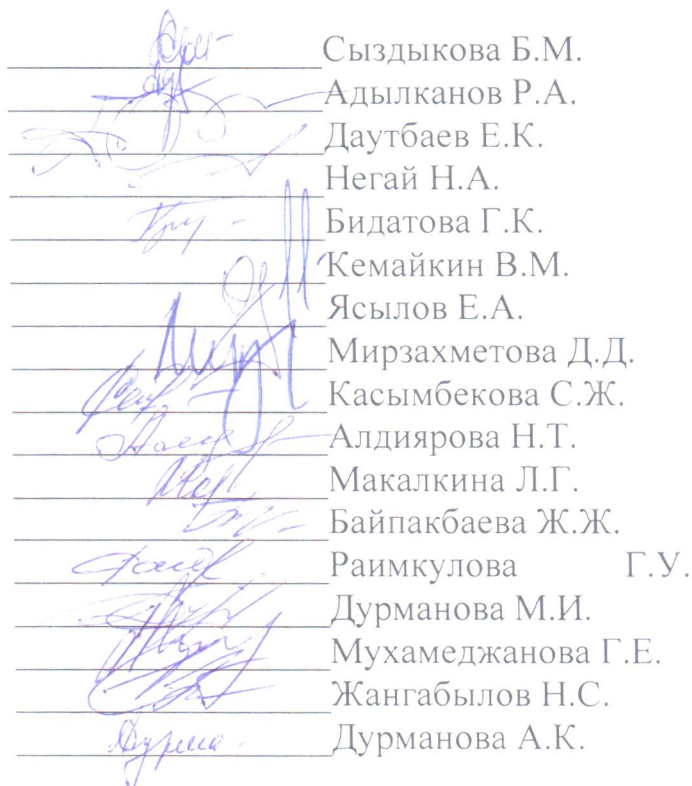 Сыздыкова Б.М.
Адылканов Р.А.
Даутбаев Е.К.
Негай Н.А.
Бидатова Г.К.
Кемайкин В.М.
Ясылов Е.А.
Мирзахметова Д.Д.
Касымбекова С.Ж.
Алдиярова Н.Т.
Макалкина Л.Г.
Байпакбаева Ж.Ж.
Раимкулова Г.У.
Дурманова М.И.
Мухамеджанова Г.Е.
Жангабылов Н.С.
Дурманова А.К.